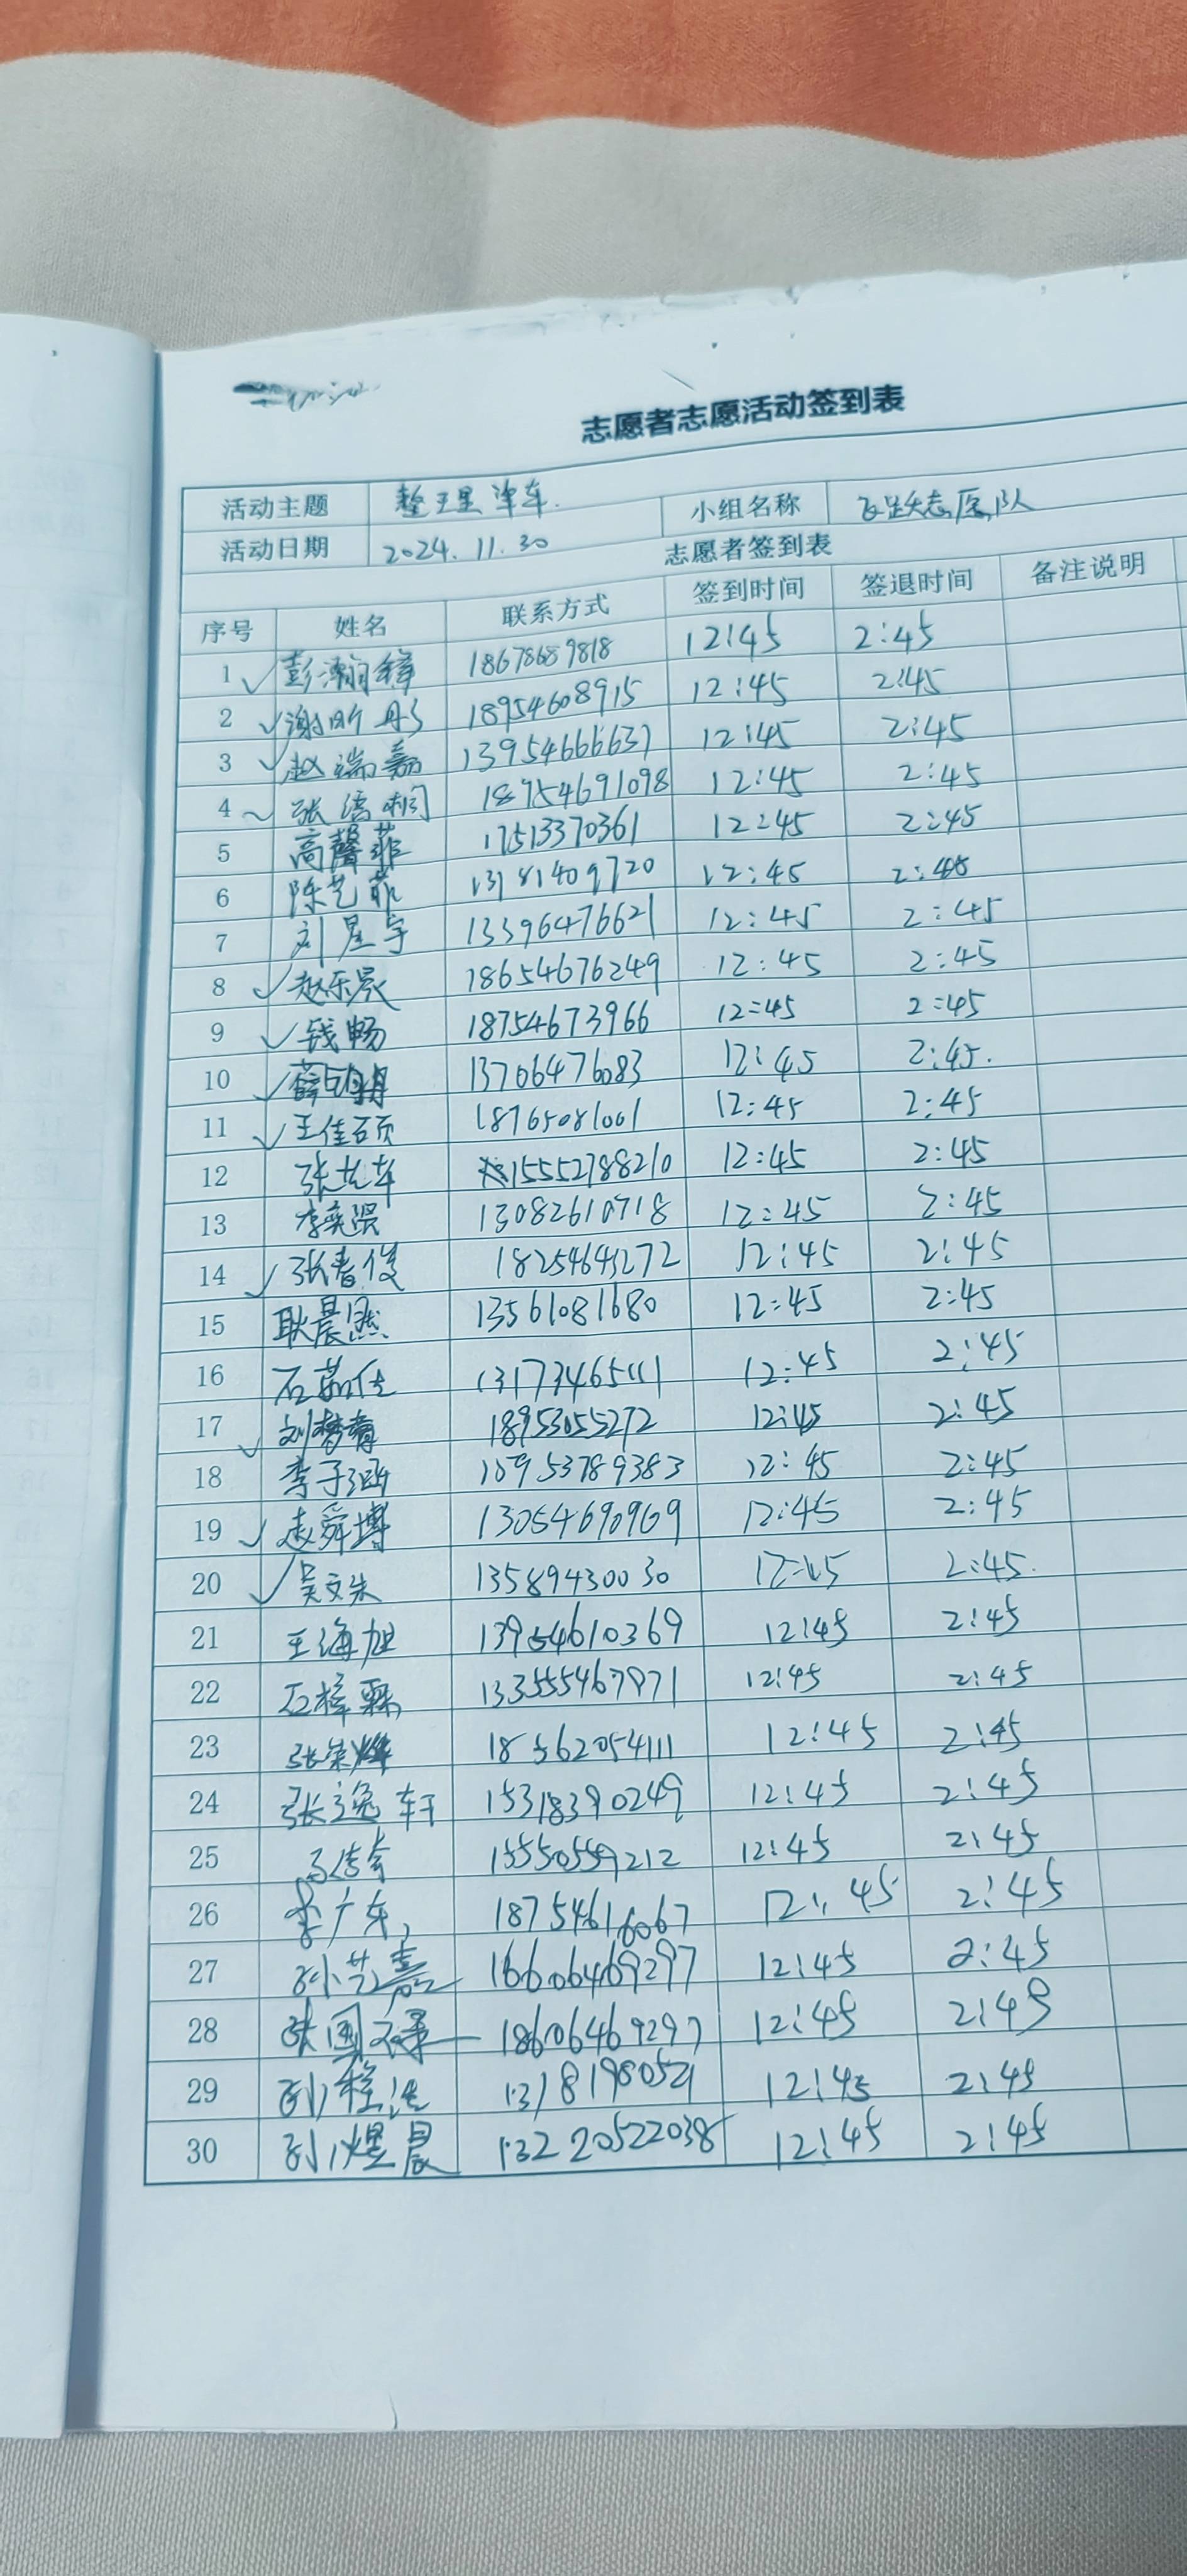 志愿者志愿活动签到表
活动主题 整理单车. 小组名称 志愿队
活动日期 2024.11.30 志愿者签到表
序号 姓名 联系方式 签到时间 签退时间 备注说明
1 彭瀚锋 18678689818 12:45 2:45
2 谢昕彤 18954608915 12:45 2:45
3 赵瑞嘉 13954666637 12:45 2:45
4 张 18954691098 12:45 2:45
5 高馨菲 17513370361 12:45 2:45
6 陈艺菲 13181409720 12:45 2:45
7 刘星宇 13396476621 12:45 2:45
8 赵乐晨 18654676249 12:45 2:45
9 钱畅 18754673966 12:45 2:45
10 薛 13706476083 12:45 2:45.
11 王佳硕 18765081001 12:45 2:45
12 张 15552788210 12:45 2:45
13 李奕 13082610718 12:45 2:45
14 张春俊 12:45 2:45
15 耿晨 13561081680 12:45 2:45
16 石茹佳 13173465111 12:45 2:45
17 刘梦 18953055272 12:45 2:45
18 李子涵 12:45 2:45
19 舜博 13054690969 12:45 2:45
20 吴文朱 13589430030 12:45 2:45.
21 王海旭 13954610369 12:45 2:45
22 石梓霖 12:45 2:45
23 张荣烨 18562054111 12:45 2:45
24 张逸轩 15318390249 12:45 2:45
25 马传奇 15550559212 12:45 2:45
26 李广东 18754616067 12:45 2:45
27 孙艺嘉 16606469297 12:45 2:45
28 张国禄 18606469297 12:45 2:45
29 程 13181980521 12:45 2:45
30 煜晨 13220522038 12:45 2:45